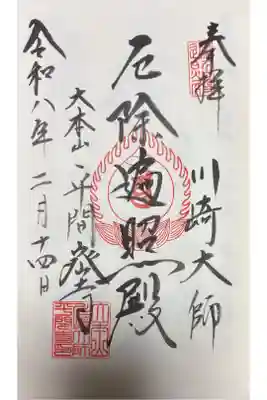 奉拝
川崎大師
厄除遍照殿
大本山平間寺
令和八年二月十四日